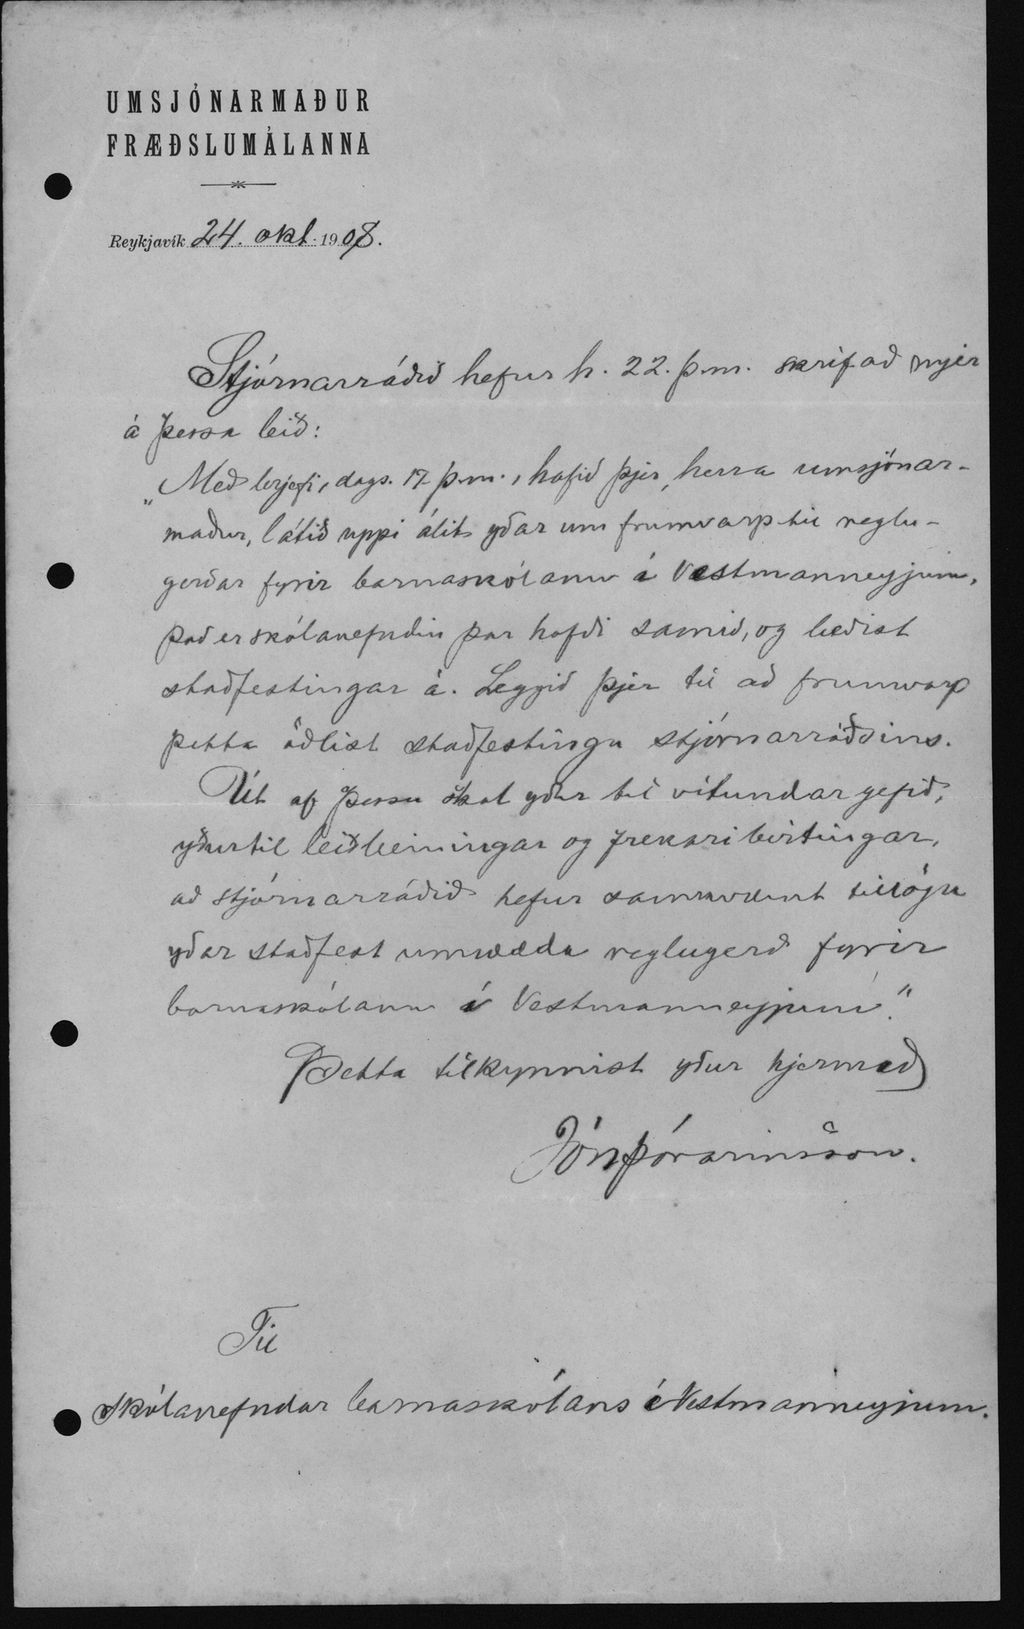 UMSJÓNARMAÐUR
FRÆÐSLUMÁLANNA
Reykjavík 24. okt. 1908.
Stjórnarráðið hefur h. 22. þ.m. skrifað mjer
á þessa leið:
„Með brjefi, dags. 17. þ.m., hafið þjer, herra umsjónar-
maður, látið uppi álit yðar um frumvarp til reglu-
gerðar fyrir barnaskólann í Vestmanneyjum,
það er skólanefndin þar hafði samið, og beðist
staðfestingar á. Leggið þjer til að frumvarp
þetta öðlist staðfestingu stjórnarráðsins.
Út af þessu skal yður til vitundar gefið,
yður til leiðbeiningar og frekari birtingar,
að stjórnarráðið hefur samkvæmt tillögu
yðar staðfest umrædda reglugerð fyrir
barnaskólann í Vestmanneyjum“.
Þetta tilkynnist yður hjermeð
Jón Þórarinsson.
Til
skólanefndar barnaskólans í Vestmanneyjum.